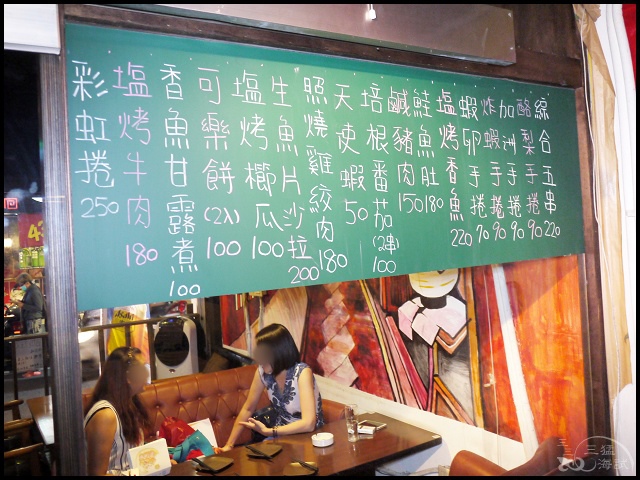 彩虹捲 250
塩烤牛肉 180
香魚甘露煮 100
可樂餅 (2入) 100
塩烤櫛瓜 100
生魚片沙拉 200
照燒雞絞肉 180
天使蝦 50
培根番茄 (2串) 100
鹹豬肉 150
鮭魚肚 180
塩烤香魚 220
蝦卵手捲 90
炸蝦手捲 90
加洲手捲 90
酪梨手捲 90
綜合五串 220
三猛海賊